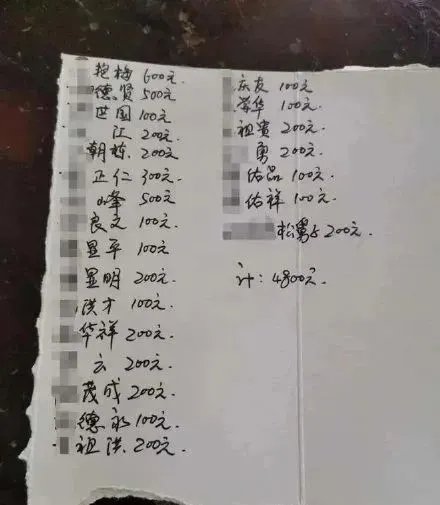 艳梅 600元
德贤 500元
世国 100元
江 200元
朝栋 200元
正仁 300元
小峰 500元
良文 100元
显平 100元
显明 200元
洪才 100元
华祥 200元
云 200元
茂成 200元
德永 100元
祖洪 200元
庆友 100元
荣华 100元
祖贵 200元
勇 200元
佑品 100元
佑祥 100元
松 200元
计：4800元